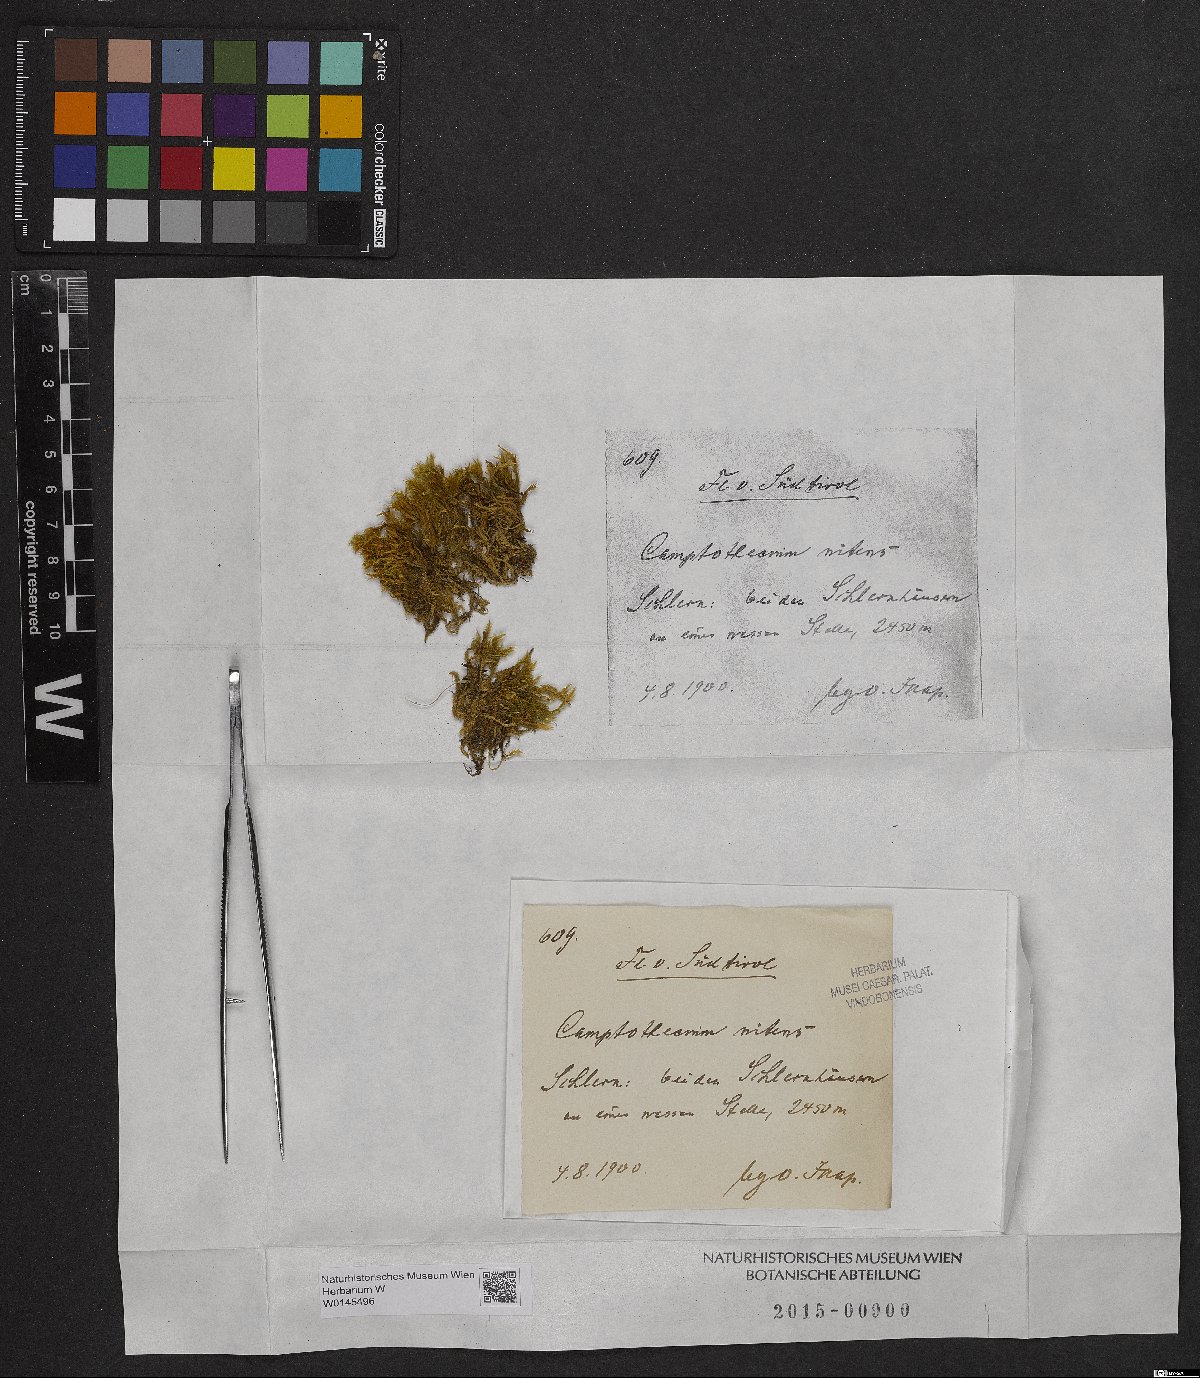 x-rite
colorchecker CLASSIC
mm
cm 0 1 2 3 4 5 6 7 8 9 10
copyright reserved
W
609.
Fl. v. Südtirol
Camptothecium nitens
Schlern: bei den Schlernhäusern
an einer nassen Stelle, 2450 m
4.8.1900.
leg.
609.
Fl. v. Südtirol
Camptothecium nitens
Schlern: bei den Schlernhäusern
an einer nassen Stelle, 2450 m
4.8.1900.
leg.
HERBARIUM
MUSEI CAESAR. PALAT.
VINDOBONENSIS
NATURHISTORISCHES MUSEUM WIEN
BOTANISCHE ABTEILUNG
2015-00900
Naturhistorisches Museum Wien
Herbarium W
W0145496